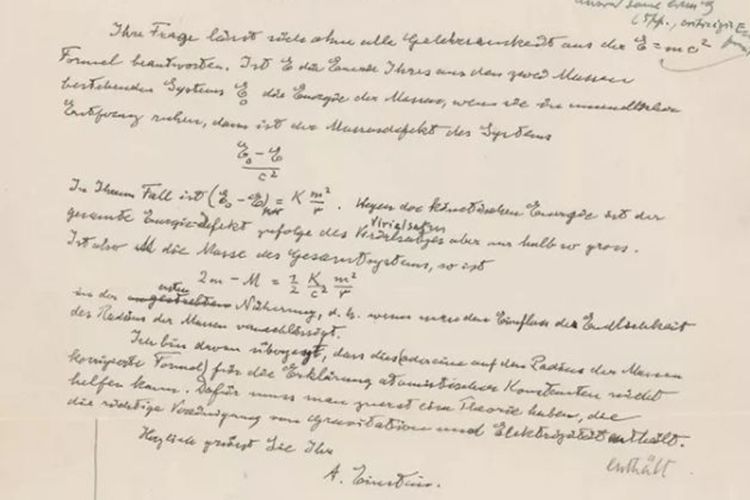 Ihre Frage lässt sich ohne alle Gelehrsamkeit aus der E = mc²
Formel beantworten. Ist E die Energie Ihres aus den zwei Massen
bestehenden Systems E₀ die Energie der Massen, wenn sie in unendlicher
Entfernung ruhen, dann ist der Massendefekt des Systems
E₀ – E
c²
In Ihrem Fall ist (E₀ – E) = K m²/r . Wegen der kinetischen Energie ist der
Virialsatzes
gesamte Energie-Defekt zufolge des aber nur halb so gross.
Ist also M die Masse des Gesamtsystems, so ist
2m – M = 1/2 K/c² m²/r
ersten
in der Näherung, d. h. wenn man den Einfluss der Endlichkeit
des Radius der Massen vernachlässigt.
Ich bin davon überzeugt, dass dies (oder eine auf den Radius der Massen
korrigierte Formel) für die Erklärung atomistischer Konstanten nicht
helfen kann. Dafür muss man zuerst eine Theorie haben, die
die richtige Vereinigung von Gravitation und Elektrizität enthält.
enthält
Herzlich grüsst Sie Ihr
A. Einstein.